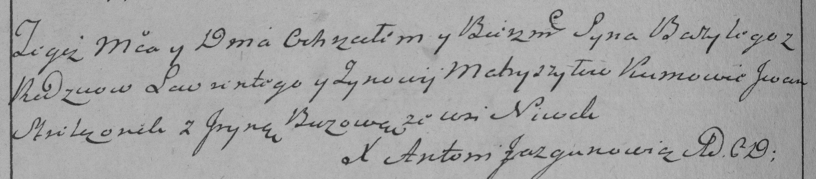 Tegoż Mca y Dnia Ochrzciłem y Bierzm Syna Bazylego z
Rodziców Lawrentego y Zynowij Matyszytow Kumowie Jwan
z Jryną Buzową ze wsi Niwek
X Antoni Jazgunowicz P. C D;